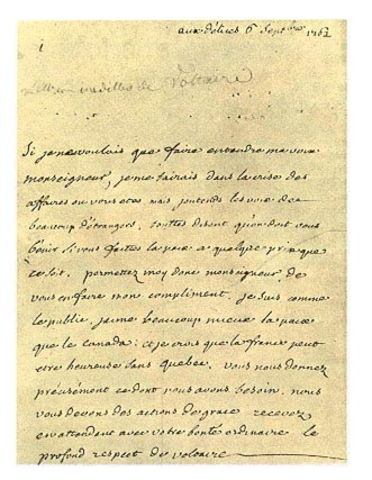 aux délices 6 Septbre 1762
1
de Voltaire
Si je ne voulais que faire entendre ma voix
monseigneur, je me tairais dans la crise des
affaires ou vous etes. mais j'entends les voix de
beaucoup d'étrangers, touttes disent qu'on doit vous
bénir si vous faittes la paix a quelque prix que
ce soit. permettez moy donc monseigneur de
vous en faire mon compliment. je suis comme
le public, j'aime beaucoup mieux la paix
que le canada: et je crois que la france peut
etre heureuse sans Quebec. vous nous donnez
précisément ce dont nous avons besoin. nous
vous devons des actions de grace. recevez
en attendant avec votre bonté ordinaire le
profond respect de voltaire